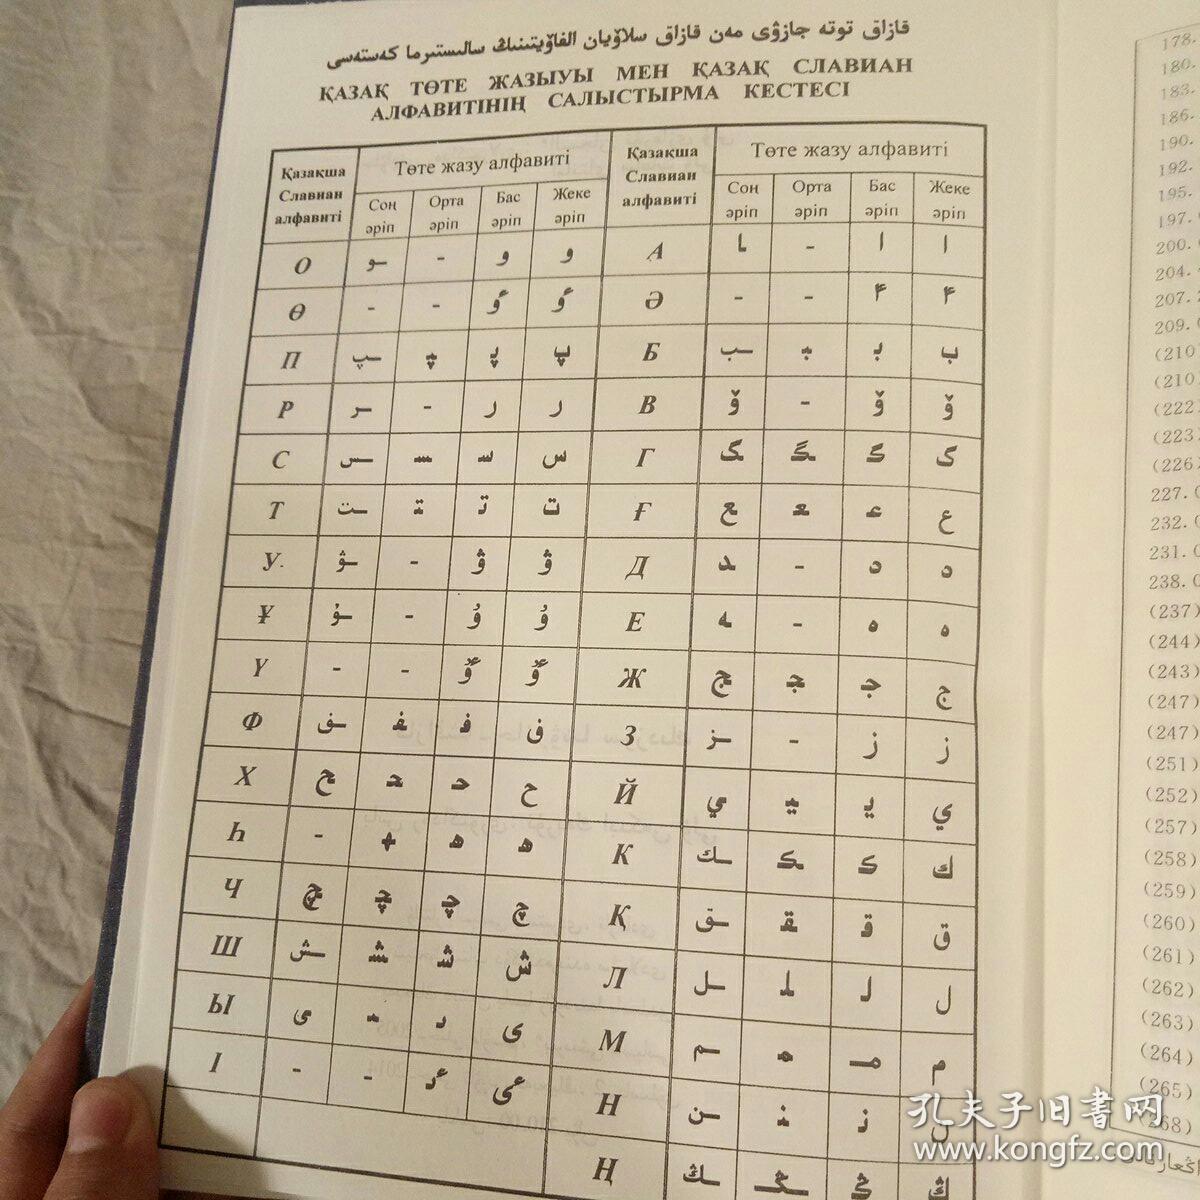 قازاق توتە جازۋى مەن قازاق سلاۆيان الفاۆيتىنىڭ سالىستىرما كەستەسى
ҚАЗАҚ ТӨТЕ ЖАЗЫУЫ МЕН ҚАЗАҚ СЛАВИАН
АЛФАВИТІНІҢ САЛЫСТЫРМА КЕСТЕСІ
Қазақша Славиан алфавиті Төте жазу алфавиті Қазақша Славиан алфавиті Төте жазу алфавиті
Соң әріп Орта әріп Бас әріп Жеке әріп Соң әріп Орта әріп Бас әріп Жеке әріп
О ـو - و و А ـا - ا ا
Ө - - ٴو ٴو Ә - - ٴا ٴا
П ـپ ـپـ پـ پ Б ـب ـبـ بـ ب
Р ـر - ر ر В ۆ - ۆ ۆ
С ـس ـسـ سـ س Г ـگ ـگـ گـ گ
Т ـت ـتـ تـ ت Ғ ـع ـعـ عـ ع
У ـۋ - ۋ ۋ Д ـد - د د
Ұ ـۇ - ۇ ۇ Е ـە - ە ە
Ү - - ٴۇ ٴۇ Ж ـج ـجـ جـ ج
Ф ـف ـفـ فـ ف З ـز - ز ز
Х ـح ـحـ حـ ح Й ـي ـيـ يـ ي
Һ - ـھـ ھ ھ К ـك ـكـ كـ ك
Ч ـچ ـچـ چـ چ Қ ـق ـقـ قـ ق
Ш ـش ـشـ شـ ش Л ـل ـلـ لـ ل
Ы ـى ـىـ ىـ ى М ـم ـمـ مـ م
І - - ٴىـ ٴى Н ـن ـنـ نـ ن
Ң ـڭ ـڭـ ڭـ ڭ
178.
180.
183.
186.
190.
192.
195.
197.
200.
204.
207.
209.
(210)
(210)
(222)
(223)
(226)
227.
232.
231.
238.
(237)
(244)
(243)
(247)
(247)
(251)
(252)
(257)
(258)
(259)
(260)
(261)
(262)
(263)
(264)
(265)
(268)
孔夫子旧书网
www.kongfz.com